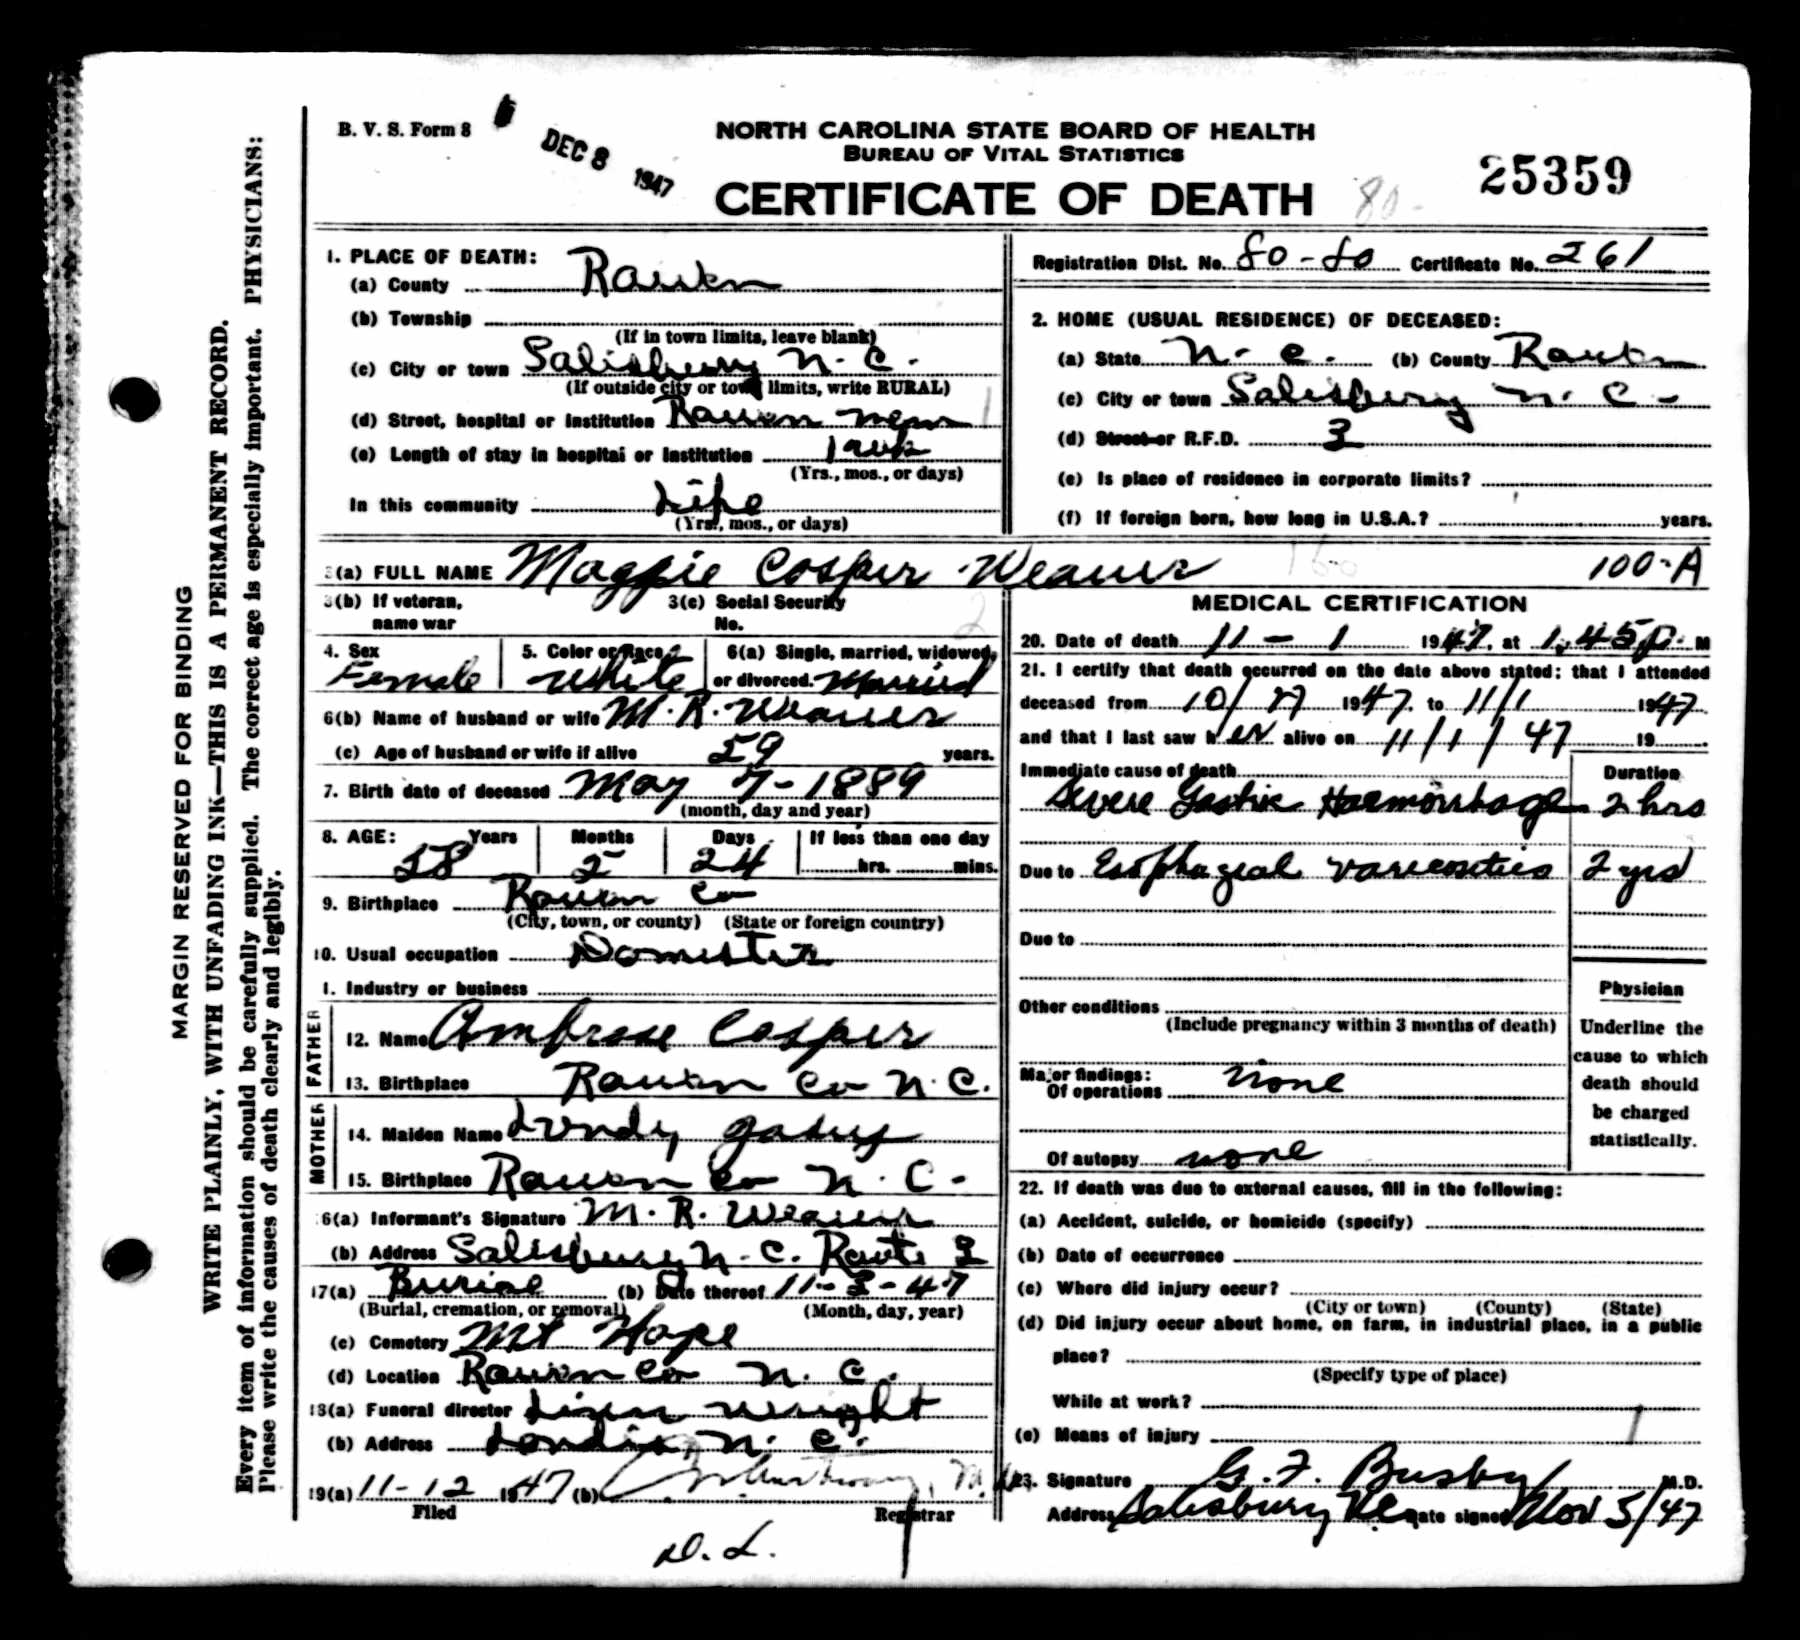 B. V. S. Form 8
DEC 8 1947
NORTH CAROLINA STATE BOARD OF HEALTH
BUREAU OF VITAL STATISTICS
CERTIFICATE OF DEATH
80-
25359
MARGIN RESERVED FOR BINDING
WRITE PLAINLY, WITH UNFADING INK—THIS IS A PERMANENT RECORD.
Every item of information should be carefully supplied. The correct age is especially important. PHYSICIANS:
Please write the causes of death clearly and legibly.
1. PLACE OF DEATH:
(a) County Rowan
(b) Township
(If in town limits, leave blank)
(c) City or town Salisbury N. C.
(If outside city or town limits, write RURAL)
(d) Street, hospital or institution Rowan Mem
(e) Length of stay in hospital or institution 1 wk
(Yrs., mos., or days)
In this community Life
(Yrs., mos., or days)
Registration Dist. No. 80-80 Certificate No. 261
2. HOME (USUAL RESIDENCE) OF DECEASED:
(a) State N. C. (b) County Rowan
(c) City or town Salisbury N. C.
(d) Street or R.F.D. 3
(e) Is place of residence in corporate limits?
(f) If foreign born, how long in U.S.A.? years.
3(a) FULL NAME Maggie Casper Weaver 100-A
3(b) If veteran, name war
3(c) Social Security No.
4. Sex Female
5. Color or Race White
6(a) Single, married, widowed, or divorced. Married
6(b) Name of husband or wife M. R. Weaver
(c) Age of husband or wife if alive 59 years.
7. Birth date of deceased May 7-1889
(month, day and year)
8. AGE: Years Months Days If less than one day
58 5 24 hrs. mins.
9. Birthplace Rowan Co
(City, town, or county) (State or foreign country)
10. Usual occupation Domestic
1. Industry or business
FATHER
12. Name Ambrose Casper
13. Birthplace Rowan Co N. C.
MOTHER
14. Maiden Name
15. Birthplace Rowan Co N. C.
16(a) Informant's Signature M. R. Weaver
(b) Address Salisbury N. C. Route 3
17(a) Burial (b) Date thereof 11-3-47
(Burial, cremation, or removal) (Month, day, year)
(c) Cemetery Mt Hope
(d) Location Rowan Co N. C.
18(a) Funeral director Wright
(b) Address Landis, N. C.
19(a) 11-12 1947 (b) M.D.
Filed Registrar
D. L.
MEDICAL CERTIFICATION
20. Date of death 11 - 1 1947, at 1:45 p. M
21. I certify that death occurred on the date above stated; that I attended
deceased from 10/27 1947 to 11/1 1947
and that I last saw her alive on 11/1/47 19
Immediate cause of death Duration
Severe Gastric Haemorrhage 2 hrs
Due to Esophageal varicosities 2 yrs
Due to
Other conditions
(Include pregnancy within 3 months of death)
Major findings:
Of operations none
Of autopsy none
Physician
Underline the
cause to which
death should
be charged
statistically.
22. If death was due to external causes, fill in the following:
(a) Accident, suicide, or homicide (specify)
(b) Date of occurrence
(c) Where did injury occur?
(City or town) (County) (State)
(d) Did injury occur about home, on farm, in industrial place, in a public
place?
(Specify type of place)
While at work?
(e) Means of injury
23. Signature G. F. Busby M.D.
Address Salisbury NC Date signed Nov 5/47